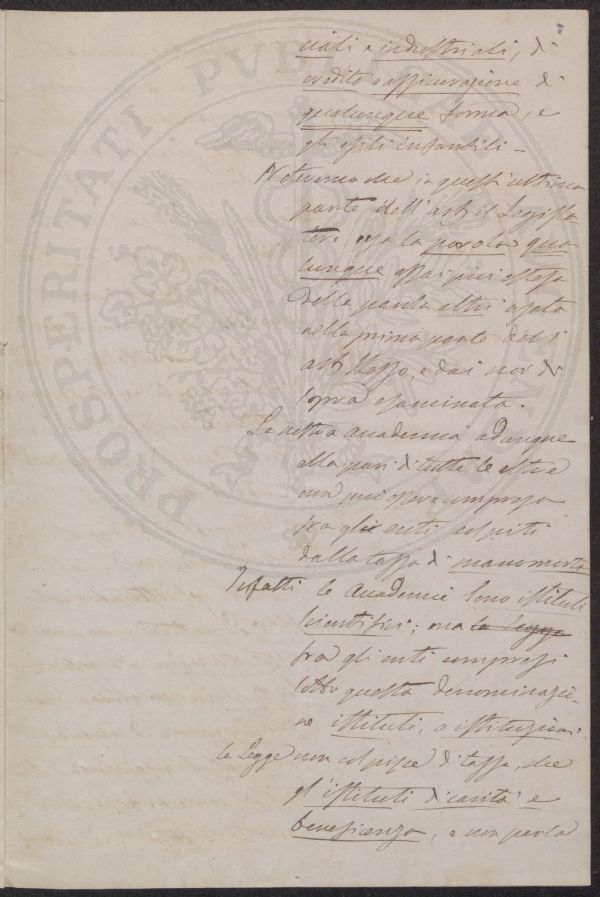 PROSPERITATI PUBLICAE
ciali e industriali, di
credito e assicurazione di
qualunque forma, e
gli asili infantili –
Noteremo che in quest'ultima
parte dell'art. il Legisla
tore usa la parola qua
lunque assai più estesa
della parola altri usata
nella prima parte dell'
art. stesso, e da noi di
sopra esaminata.
La nostra Accademia adunque
alla pari di tutte le altre
non può essere compresa
fra gli enti colpiti
dalla tassa di manomorta
Infatti le Accademie sono istituti
scientifici; ma la Legge
fra gli enti compresi
sotto questa denominazio-
ne istituti, o istituzioni
la Legge non colpisce di tassa, che
gl'istituti di carità e
beneficenza, e non parla